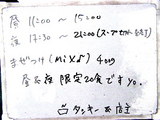 昼 11:00 ～ 15:00
夜 17:30 ～ 21:00 (スープ
まぜつけ (Mix♪) 400g
昼&夜 限定20食ですyo.
店主